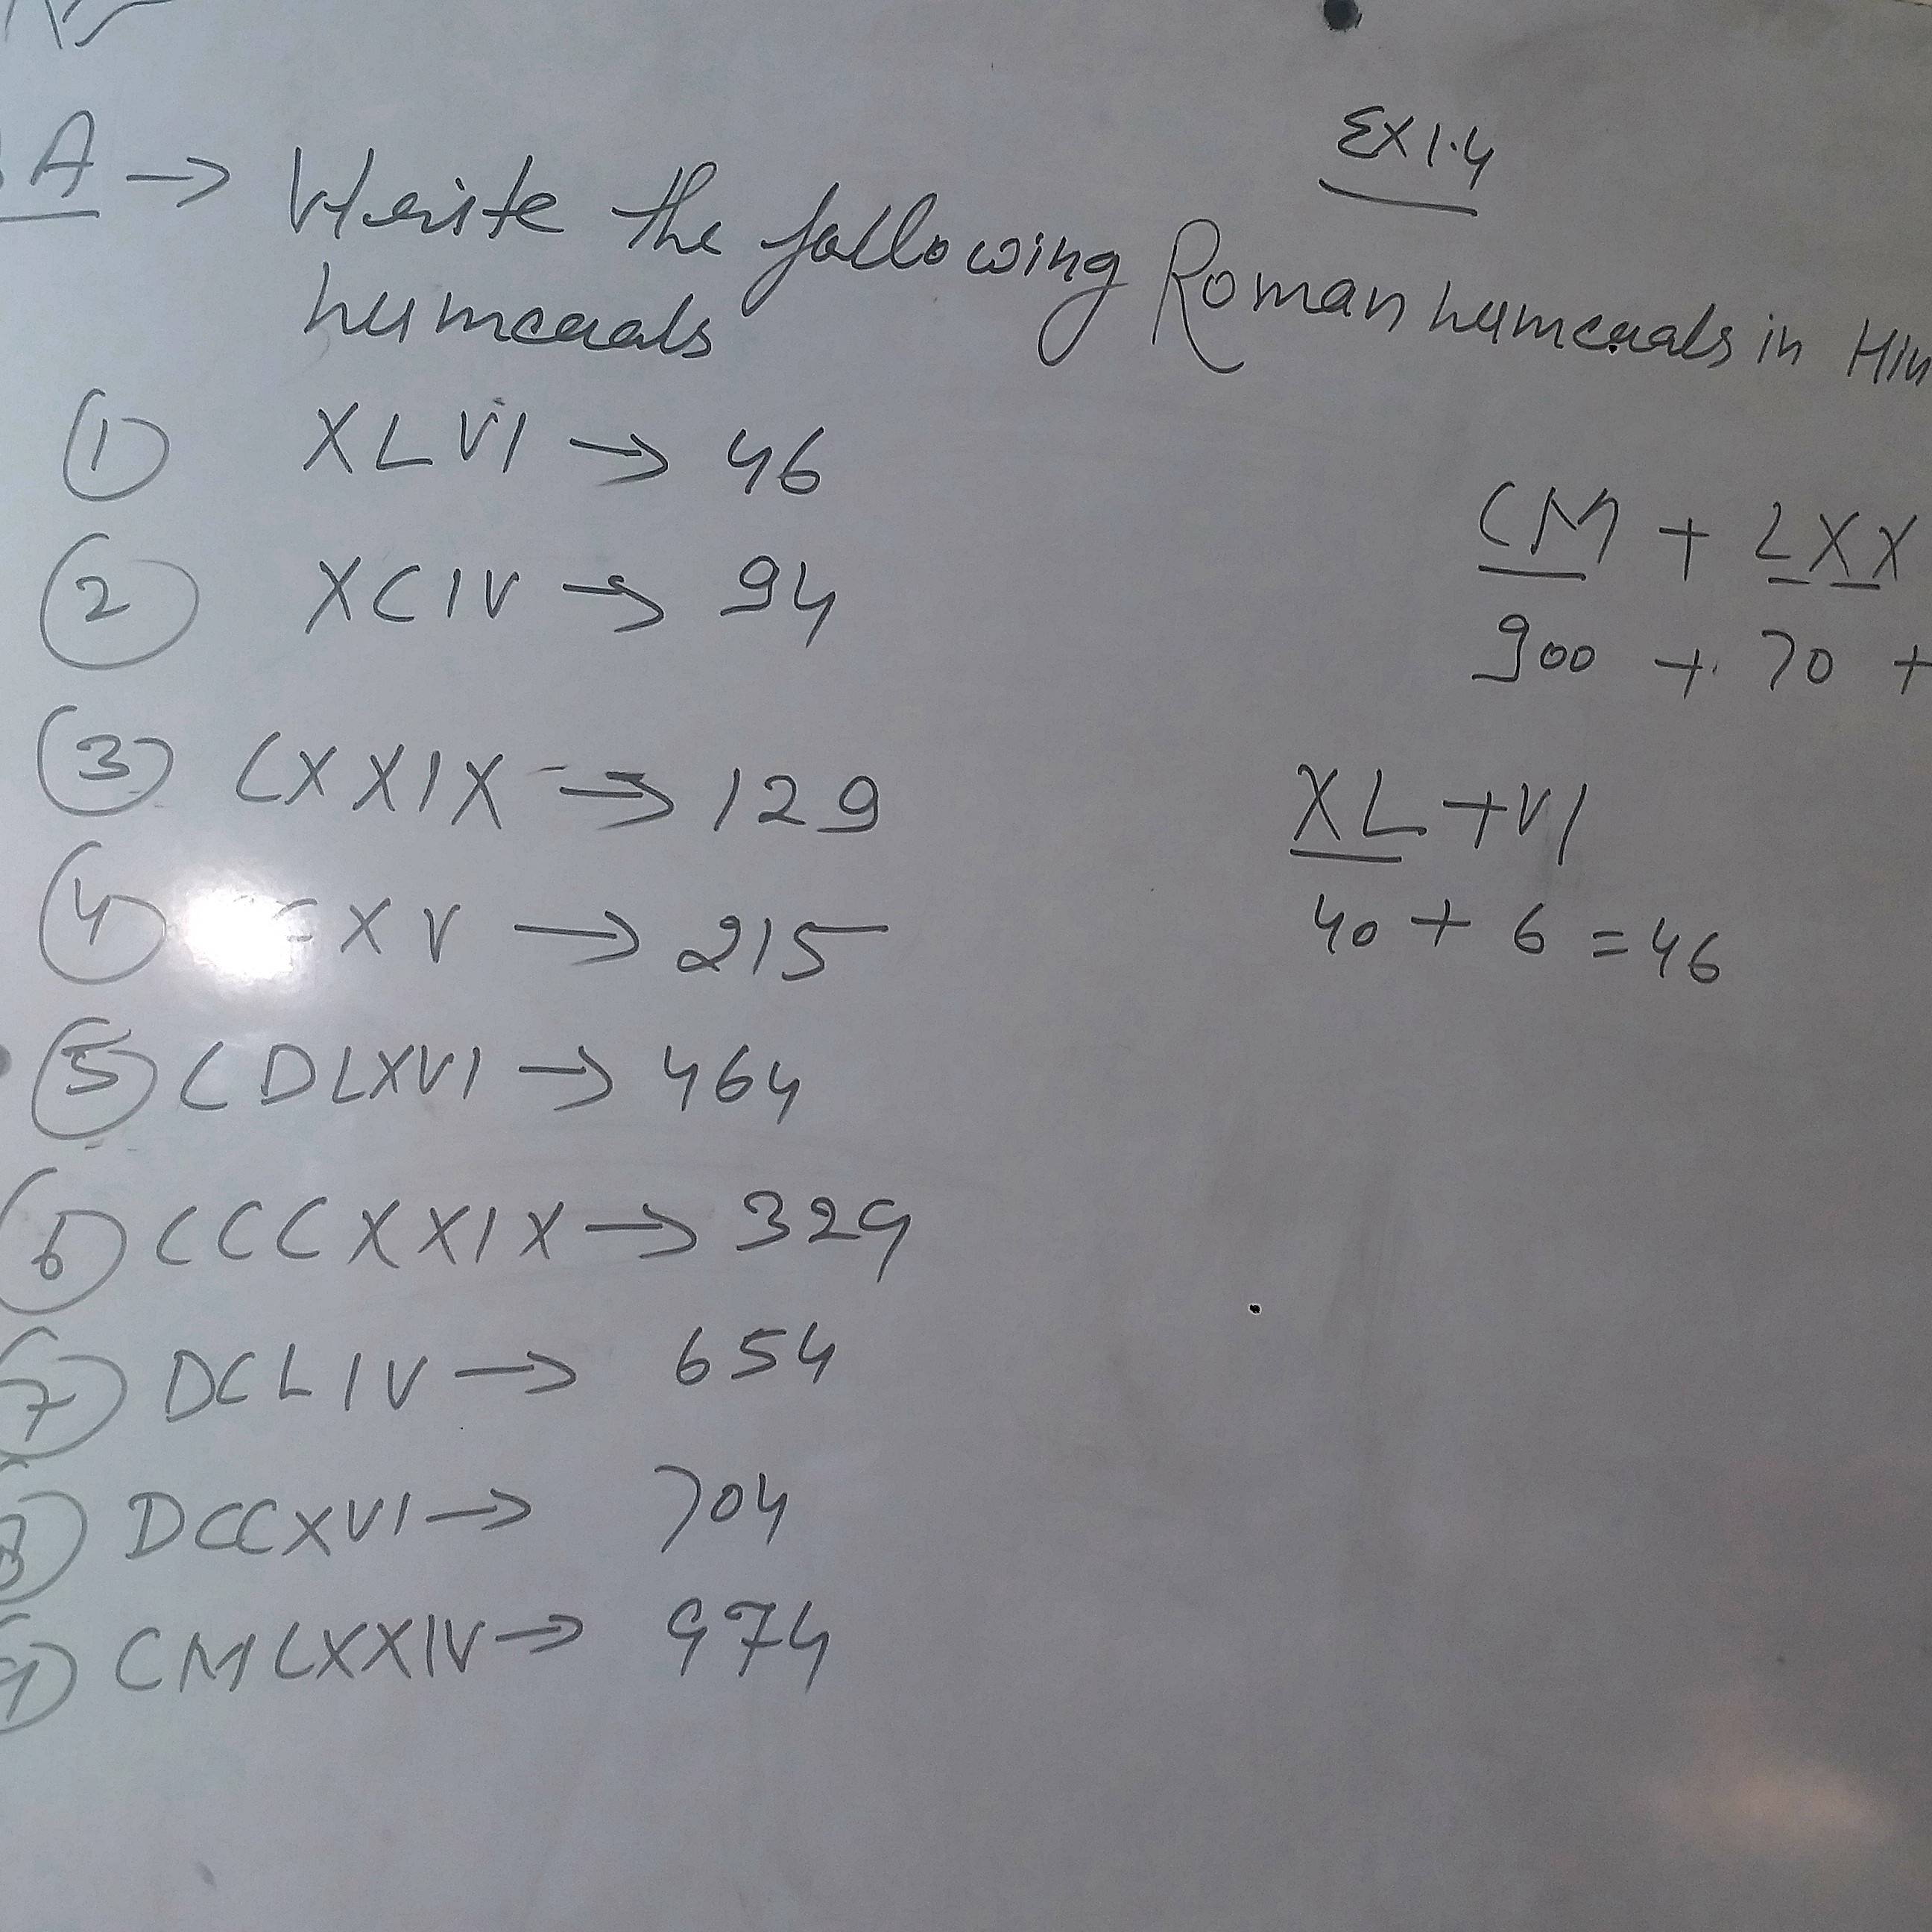 Ex 1.4
A → Write the following Roman numerals in Hin
numerals
① XLVI → 46
② XCIV → 94
③ CXXIX → 129
④ CXV → 215
⑤ CDLXVI → 464
⑥ CCCXXIX → 329
⑦ DCLIV → 654
⑧ DCCXVI → 704
⑨ CMLXXIV → 974
CM + LXX
900 + 70 +
XL + VI
40 + 6 = 46